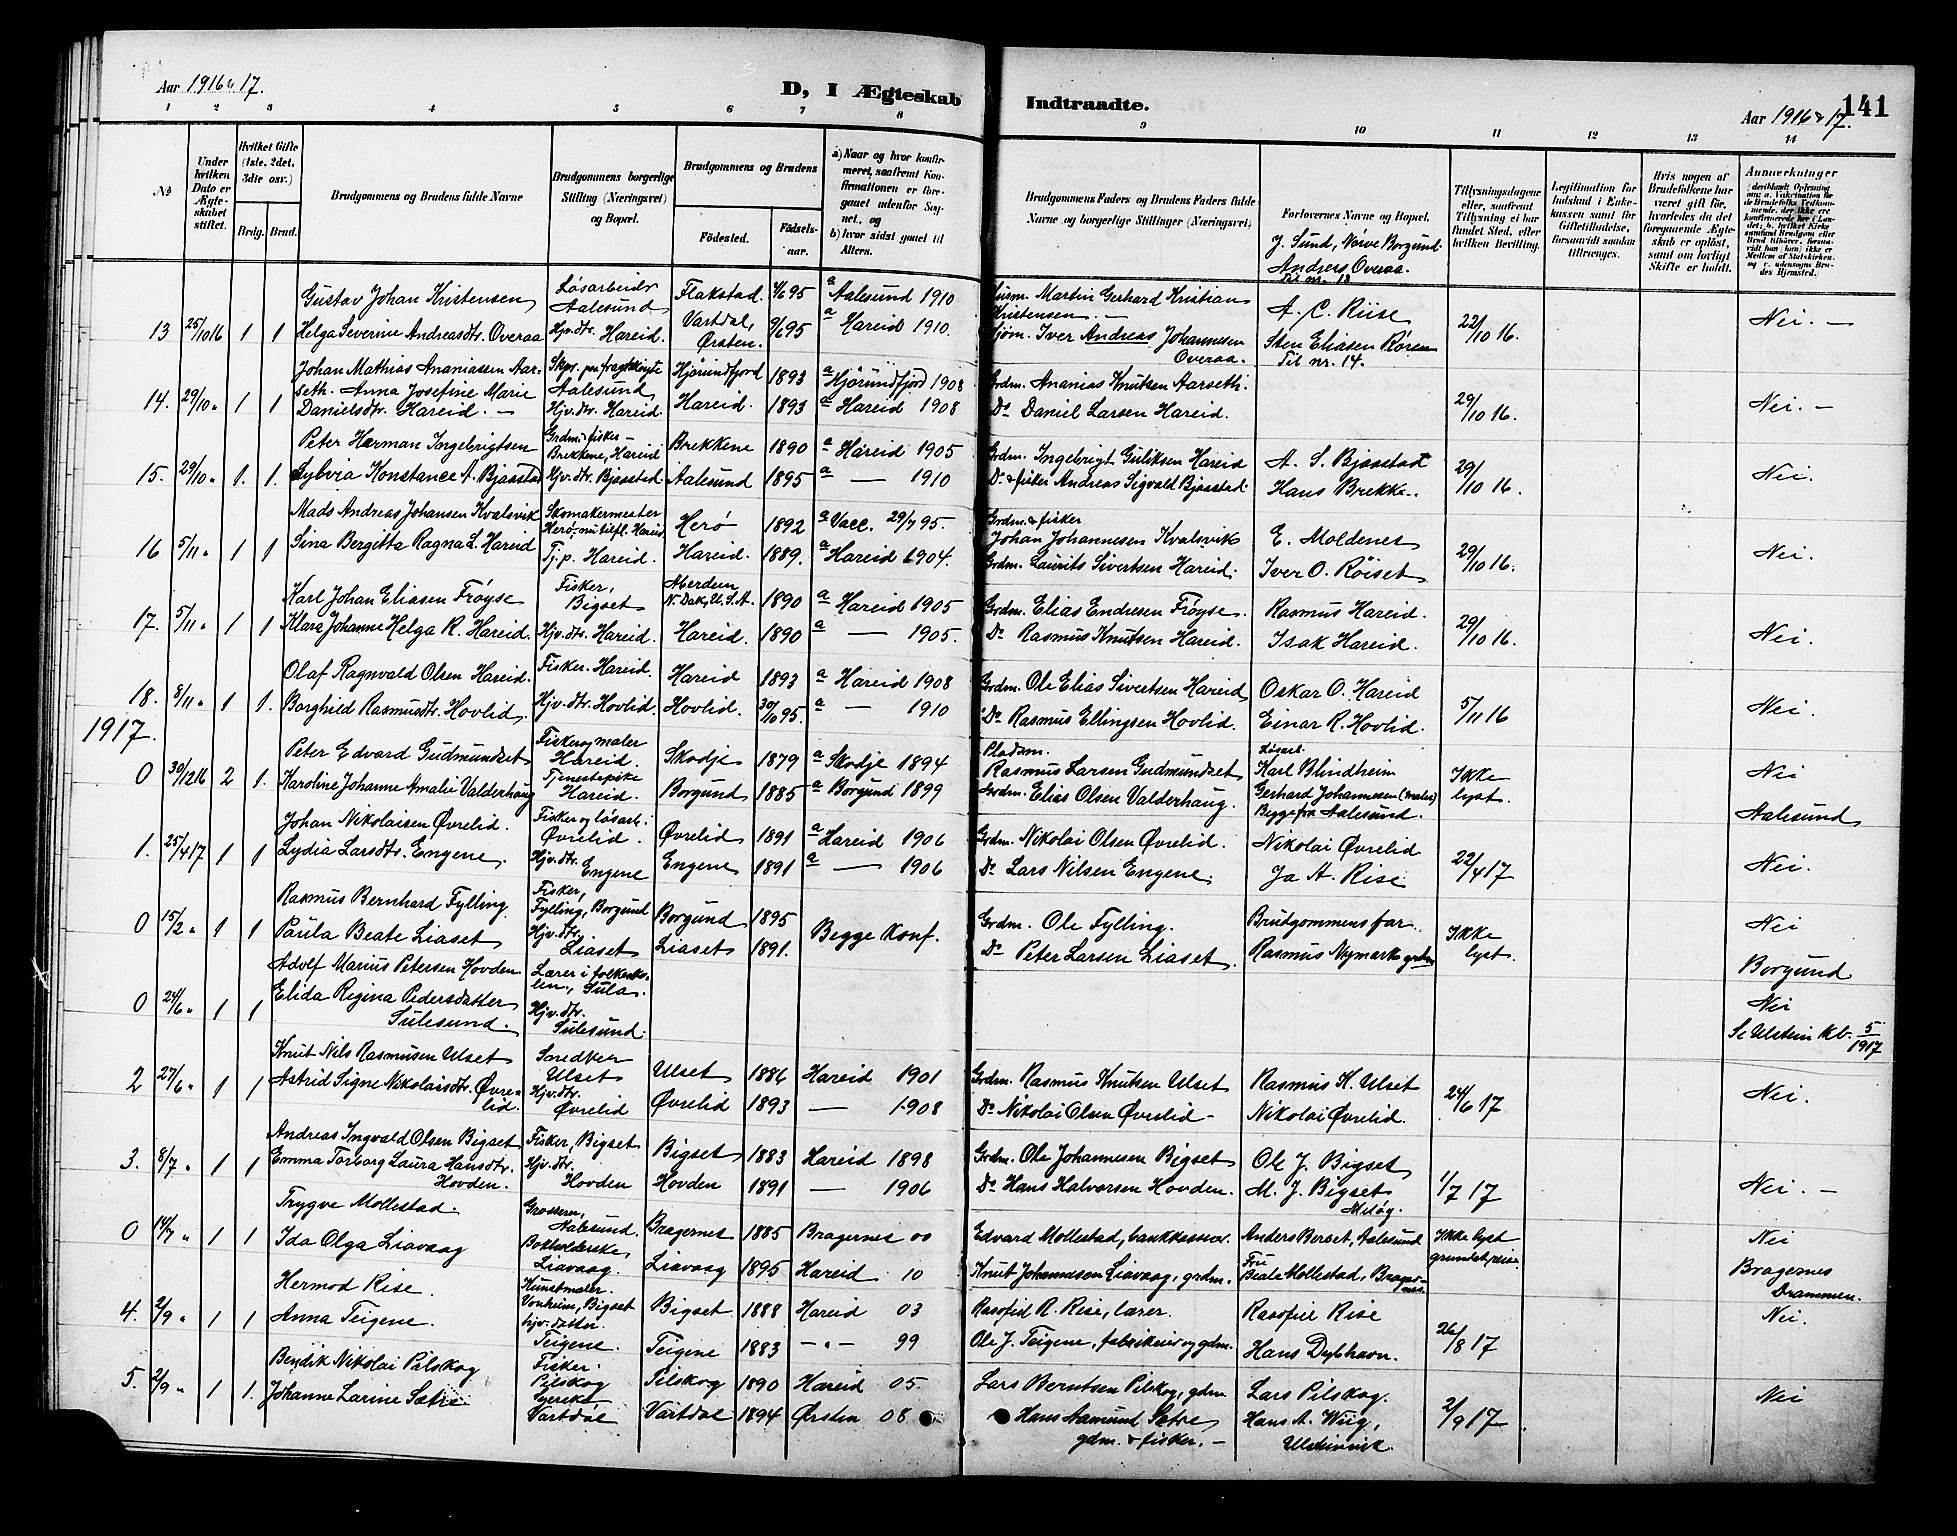 Aar 1916 & 17.
D, I Ægteskab Indtraadte.
Aar 1916 & 17.
141
1 2 3 4 5 6 7 8 9 10 11 12 13 14
№
Under hvilken Dato er Ægteskabet stiftet.
Hvilket Gifte (1ste, 2det, 3die osv.)
Brdg. Brud.
Brudgommens og Brudens fulde Navne
Brudgommens borgerlige Stilling (Næringsvei) og Bopæl.
Brudgommens og Brudens
Fødested. Fødselsaar.
a) Naar og hvor konfirmeret, saafremt Konfirmationen er foregaaet udenfor Sognet, og
b) hvor sidst gaaet til Alters.
Brudgommens Faders og Brudens Faders fulde Navne og borgerlige Stillinger (Næringsvei)
Forlovernes Navne og Bopæl.
J. Sund, Nørve Borgund
Andreas Overaa.
Til nr. 13
Tillysningsdagene eller, saafremt Tillysning ei har fundet Sted, efter hvilken Bevilling.
Legitimation for Indskud i Enkekassen samt for Giftetilladelse, forsaavidt saadan tiltrænges.
Hvis nogen af Brudefolkene har været gift før, hvorledes da det foregaaende Ægteskab er opløst, samt om lovligt Skifte er holdt.
Anmærkninger
13 25/10 16 1 1 Gustav Johan Kristensen Løsarbeider Aalesund Flakstad. 4/6 95 a Aalesund 1910 Husm. Martin Gerhard Kristian Kristensen. — A. C. Riise 22/10 16. Nei. —
Helga Severine Andreasdtr. Overaa Hjv. dtr. Hareid. Vartdal, Ørsten. 9/6 95 a Hareid 1910. Iver Andreas Johannesen Overaa. Sten Eliasen Røren
Til nr. 14.
14. 29/10 " 1 1 Johan Mathias Ananiassen Aarseth. Aalesund Hjørundfjord 1893 a Hjørundfjord 1908 Grdm. Ananias Knutsen Aarseth. 29/10 16. Nei. —
Anna Josefine Marie Danielsdtr. Hareid. — Hjv. dtr. Hareid. Hareid. 1893 a Hareid 1908 Do Daniel Larsen Hareid.
15. 29/10 " 1. 1. Peter Herman Ingebrigtsen Grdm. & fisker — Brekkene, Hareid Brekkene 1890 a Hareid 1905 Grdm. Ingebrigt Guliksen Hareid A. S. Bjaastad 29/10 16. Nei.
Sylvia Konstance A. Bjaastad Hjv. dtr. Bjaastad. Aalesund 1895 a — 1910 Do & fisker Andreas Sigvald Bjaastad Hans Brekke.
16 5/11 " 1 1 Mads Andreas Johansen Kvalsvik Skomakermester Herø 1892 a Vacc. 29/7 95. Grdm. & fisker Johan Johannesen Kvalsvik E. Moldenes 29/10 16. Nei.
Sina Bergitta Ragna L. Hareid Tj. p. Hareid. Hareid. 1889. a Hareid 1904. Grdm. Laurits Sivertsen Hareid. Iver O. Røiset
17. 5/11 " 1 1 Karl Johan Eliasen Frøyse Fisker, Bigset Aberdeen N. Dak, U. S. A. 1890 a Hareid 1905 Grdm. Elias Endresen Frøyse. Rasmus Hareid. 29/10 16. Nei.
Klara Johanne Helga R. Hareid. Hjv. dtr. Hareid. Hareid. 1890 a — 1905. Do Rasmus Knutsen Hareid. Isak Hareid.
18. 8/11 " 1 1. Olaf Ragnvald Olsen Hareid. Fisker. Hareid. Hareid 1893 a Hareid 1908 Grdm. Ole Elias Sivertsen Hareid Oskar O. Hareid 5/11 16 Nei.
Borghild Rasmusdtr. Hovlid. Hjv. dtr. Hovlid. Hovlid. 30/10 95. a — 1910 Do Rasmus Ellingsen Hovlid. Einar R. Hovlid.
1917.
0 30/12 16 2 1. Peter Edvard Gudmundset Fisker og maler Hareid. Skodje 1879 a Skodje 1894 Pladsm. Rasmus Larsen Gudmundset Løsarb. Karl Blindheim Ikke lyst. Nei
Karoline Johanne Amalie Valderhaug Tjenestepike Hareid. Borgund 1885 a Borgund 1899 Grdm. Elias Olsen Valderhaug. Gerhard Johannessen (maler) Begge fra Aalesund. Aalesund
1. 25/4 17 1 1 Johan Nikolaisen Øvrelid. Fisker og løsarb. Øvrelid Øvrelid 1891 a Hareid 1906 Grdm. Nikolai Olsen Øvrelid. Nikolai Øvrelid 22/4 17 Nei.
Lydia Larsdtr. Engene. Hjv. dtr. Engene Engene 1891 a — 1906 Do Lars Nilsen Engene. Ja A. Rise
0 15/2 " 1 1 Rasmus Bernhard Fylling Fisker, Fylling, Borgund Borgund 1895 Begge konf. Grdm. Ole Fylling. Brudgommens far. Ikke lyst. Nei
Paula Beate Liaset Hjv. dtr. Liaset Liaset 1891. Do Peter Larsen Liaset. Rasmus Nymark grdm Borgund
0 24/6 " 1 1 Adolf Marius Petersen Hovden Lærer i folkeskolen, Sula. Nei
Elida Regina Pedersdatter Sulesund. Hjv. dtr. Sulesund. Se Ulstein kb. 5/1917
2 27/6 " 1 1 Knut Nils Rasmusen Ulset Snedker Ulset Ulset 1886 Hareid 1901 Grdm. Rasmus Knutsen Ulset Rasmus K. Ulset 24/6 17 Nei.
Astrid Signe Nikolaisdtr. Øvrelid. Hjv. dtr. Øvrelid Øvrelid 1893 — 1908 Do Nikolai Olsen Øvrelid — Nikolai Øvrelid.
3. 8/7 " 1 1 Andreas Ingvald Olsen Bigset Fisker, Bigset Bigset 1883 Hareid 1898 Grdm. Ole Johannesen Bigset Ole J. Bigset 1/7 17 Nei. —
Emma Torborg Laura Hansdtr. Hovden. Hjv. dtr. Hovden Hovden 1891 — 1906 Do Hans Halvorsen Hovden. M. J. Bigset
0 14/7 " 1 1 Trygve Mollestad. Grosserer, Aalesund. Bragernes 1885 Bragernes 00 Edvard Mollestad, bankkasserer. Anders Berset, Aalesund Ikke lyst grundet reise. Nei
Ida Olga Liavaag Bokholderske, Liavaag. Liavaag 1895 Hareid 10 Knut Johannesen Liavaag, grdm. Fru Beate Mollestad, Bragernes. Bragernes Drammen.
4. 2/9 " 1 1 Hermod Rise. Kunstmaler. Vonheim, Bigset Bigset 1888 Hareid 03 Rasofiel R. Rise, lærer. Rasofiel Rise 26/8 17 Nei.
Anna Teigene. hjv. datter. Teigene. Teigene 1883 — " — 99 Ole J. Teigene, fabrikeier og gdm. Hans Dybhavn.
5. 2/9 " 1 1. Bendik Nikolai Pilskog Fisker. Pilskog Pilskog 1890 Hareid 05. Lars Berntsen Pilskog, gdm Lars Pilskog. 2/9 17 Nei
Johanne Larine Sætre Syerske Vartdal Vartdal 1894 Ørsten 08 Hans Aamund Sætre gdm. & fisker. — Hans A. Wiig, Ulsteinvik.